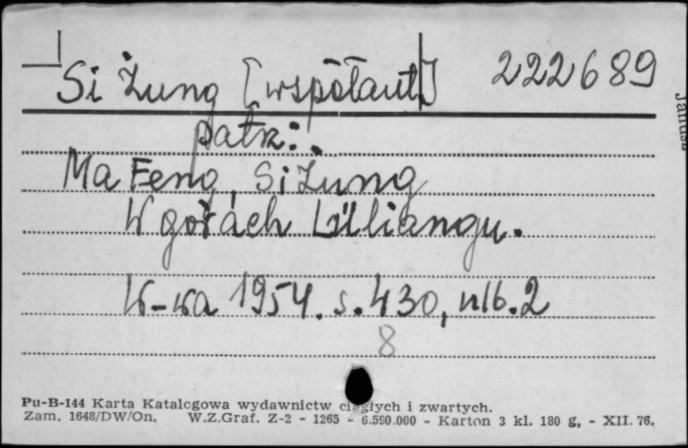 Si Żung [współaut.] 222689
patrz:
Ma Feng, Si Żung
W górach Lüliangu.
W-wa 1954. s. 430, nlb. 2
8
Pu-B-144 Karta Katalogowa wydawnictw ciągłych i zwartych.
Zam. 1648/DW/On. W.Z.Graf. Z-2 - 1265 - 6.550.000 - Karton 3 kl. 180 g, - XII. 76.